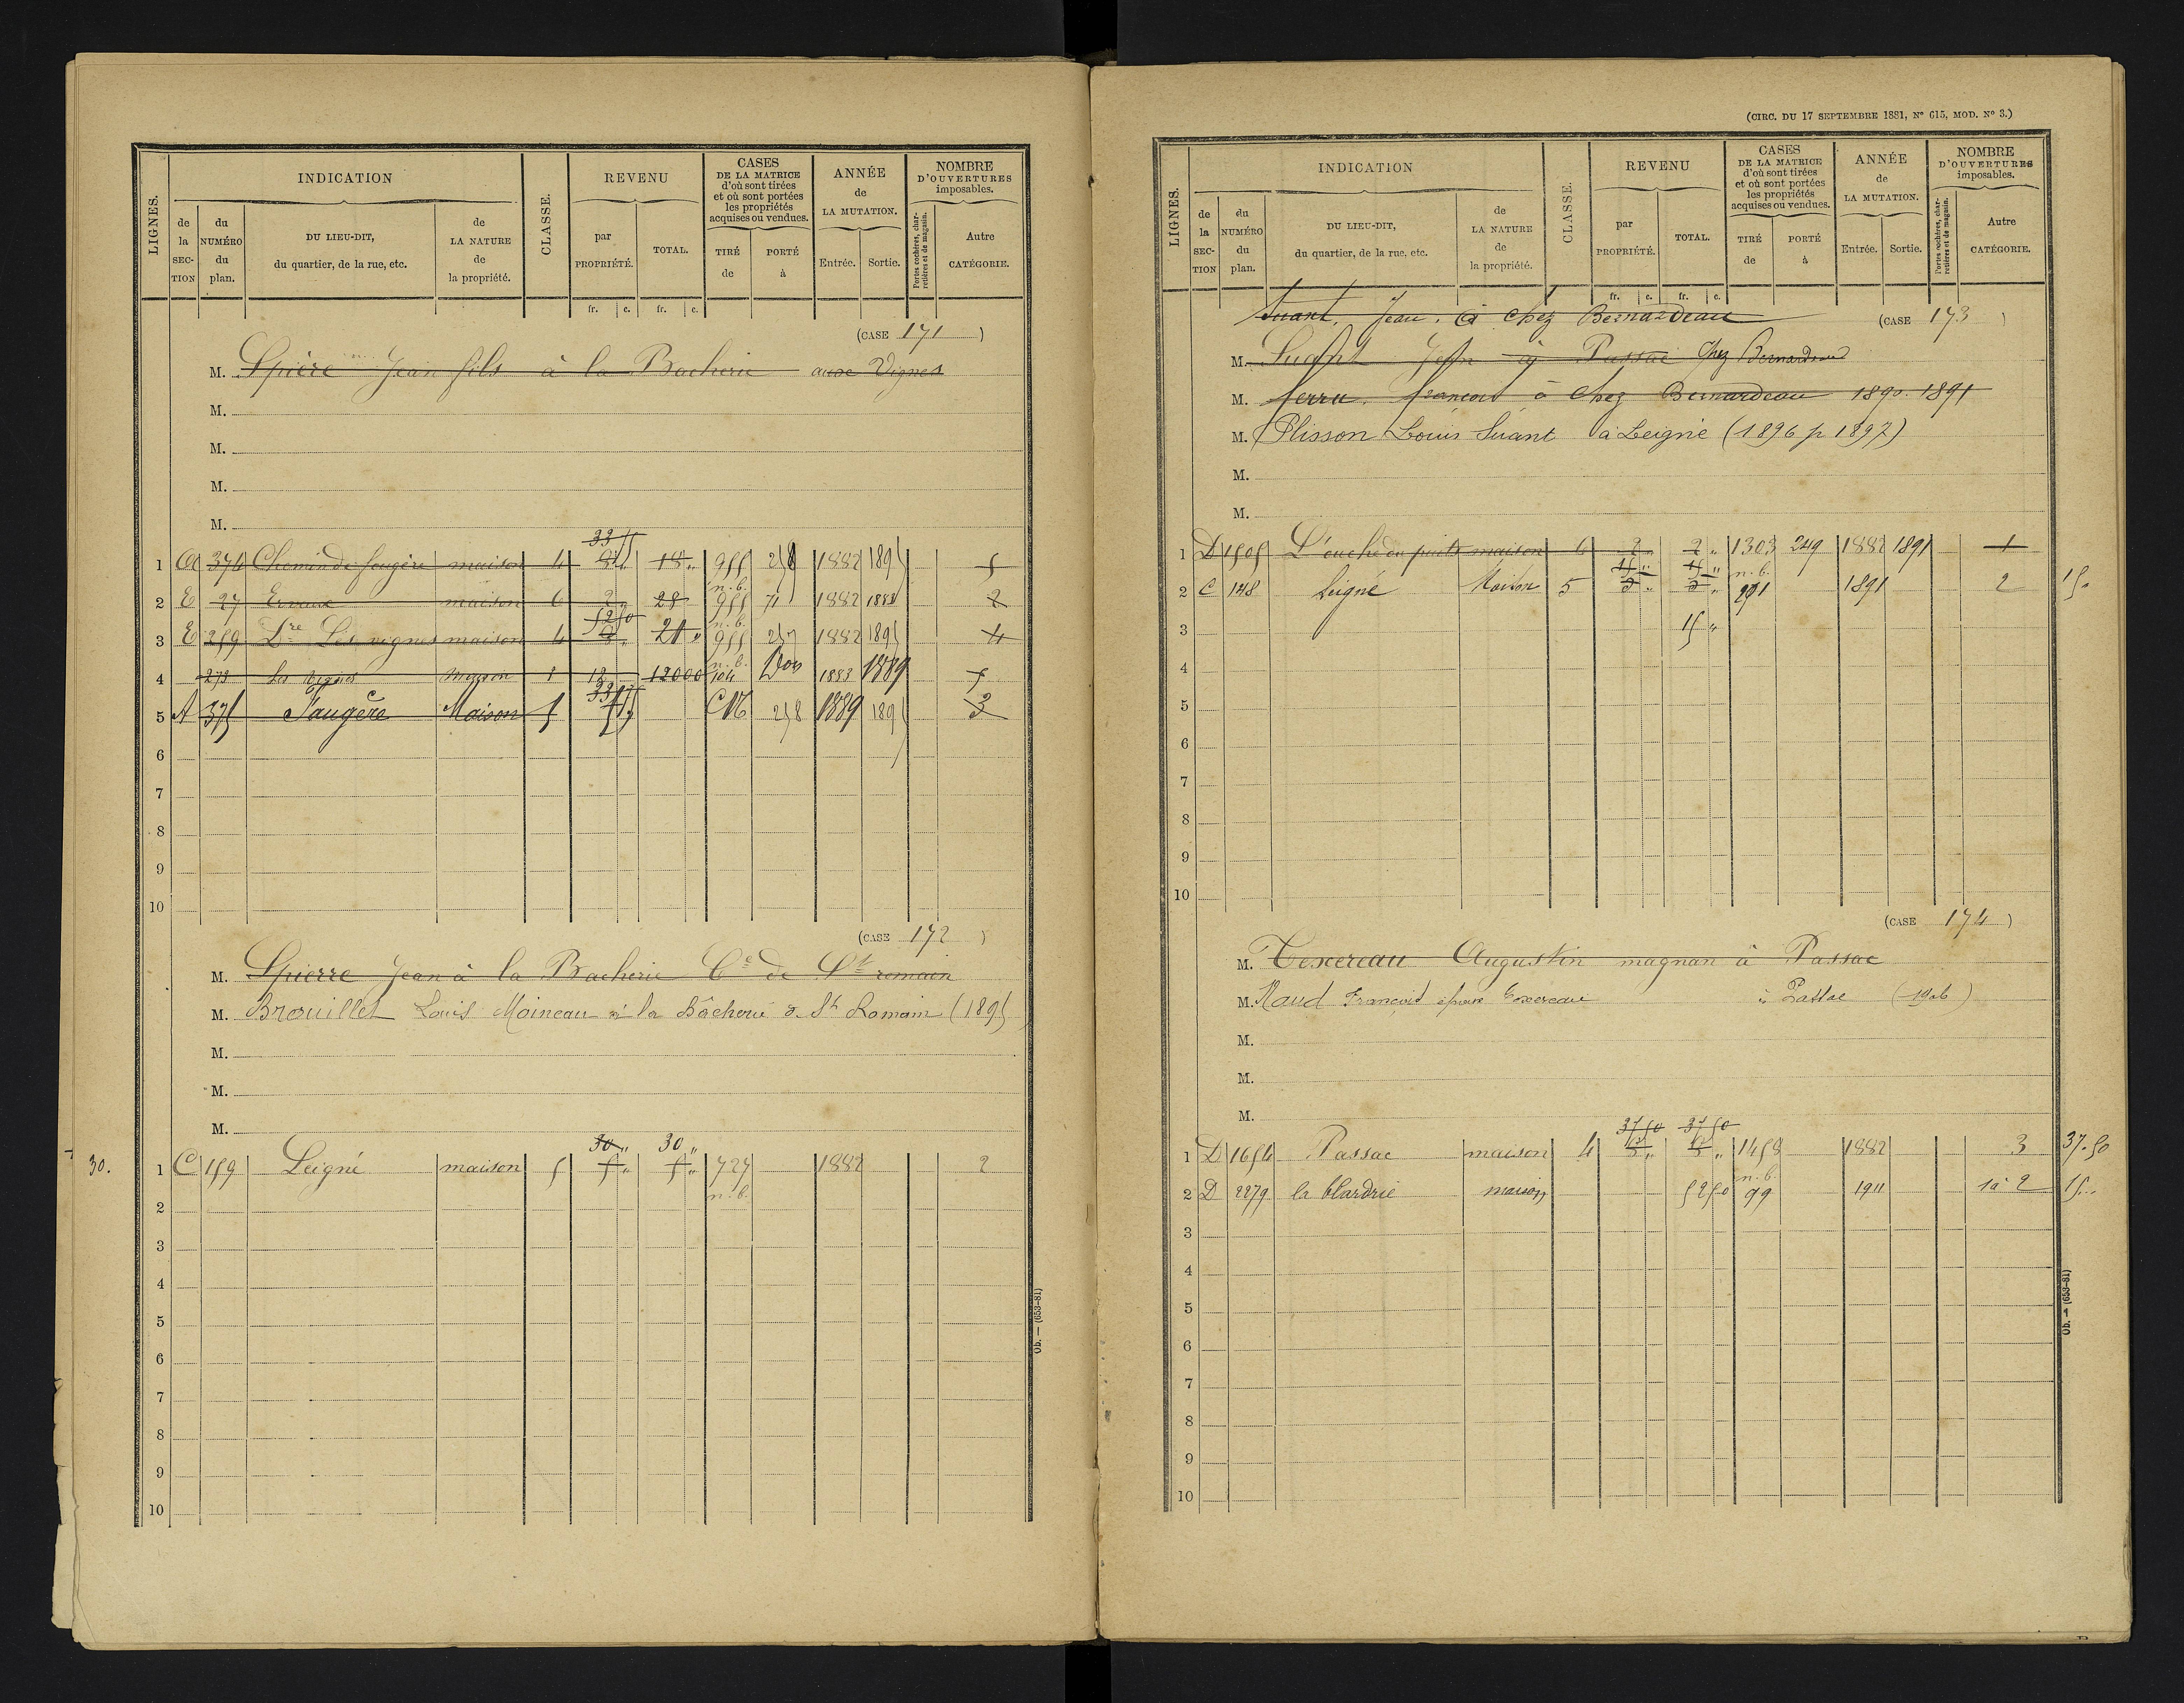 LIGNES.
INDICATION
de la SECTION
du NUMÉRO du plan.
DU LIEU-DIT, du quartier, de la rue, etc.
de LA NATURE de la propriété.
CLASSE.
REVENU
par PROPRIÉTÉ.
TOTAL.
fr. c. fr. c.
CASES DE LA MATRICE d'où sont tirées et où sont portées les propriétés acquises ou vendues.
TIRÉ de
PORTÉ à
ANNÉE de LA MUTATION.
Entrée. Sortie.
NOMBRE D'OUVERTURES imposables.
Portes cochères, charretières et de magasin.
Autre CATÉGORIE.
(CASE 171)
M. Spière Jean fils à la Bacherie aux Vignes
M.
M.
M.
M.
1 A 374 Chemin de fougère maison 4 18 " 955 258 1882 1895 5
n.b.
2 E 27 maison 6 2 28 955 71 1882 1888 2
52 50 n.b.
3 E 259 Dre Les vignes maison 4 21 " 955 257 1882 1895 4
n.b.
4 273 Les vignes maison 12 12000 104 1883 1889
5 A 375 Faugère Maison 5 CN 258 1889 1895 3
6
7
8
9
10
(CASE 172)
M. Spierre Jean à la Bacherie Cne de St romain
M. Brouillet Louis Moineau à la Bâcherie d. St Romain (1895
M.
M.
M.
30 " 30 "
30. 1 C 159 Leigné maison 5 5 " 5 " 727 1882 2
n.b.
2
3
4
5
6
7
8
9
10
Ob. — (653-81)
(CIRC. DU 17 SEPTEMBRE 1881, N° 615, MOD. N° 3.)
LIGNES.
INDICATION
de la SECTION
du NUMÉRO du plan.
DU LIEU-DIT, du quartier, de la rue, etc.
de LA NATURE de la propriété.
CLASSE.
REVENU
par PROPRIÉTÉ.
TOTAL.
fr. c. fr. c.
CASES DE LA MATRICE d'où sont tirées et où sont portées les propriétés acquises ou vendues.
TIRÉ de
PORTÉ à
ANNÉE de LA MUTATION.
Entrée. Sortie.
NOMBRE D'OUVERTURES imposables.
Portes cochères, charretières et de magasin.
Autre CATÉGORIE.
Suant, Jean. à chez Bernardeau
(CASE 173)
M. Suant Jean à Passac Chez Bernardeau
M. ferru. françois à chez Bernardeau 1890. 1891
M. Plisson Louis Suant à Leigné (1896 p 1897)
M.
M.
1 D 1505 L'ouche du puits maison 6 2 " 2 " 1303 249 1882 1891 1
15 " 15 " n.b.
2 C 148 Leigné Maison 5 201 1891 2 15.
3 15 "
4
5
6
7
8
9
10
(CASE 174)
M. Texereau Augustin magnan à Passac
M. Naud François époux Texereau à Passac (1906)
M.
M.
M.
37 50 37 50
1 D 1654 Passac maison 4 1458 1882 3 37.50
n.b.
2 D 2279 la blardrie maison 52 50 99 1911 1 à 2 15..
3
4
5
6
7
8
9
10
Ob. — (653-81)